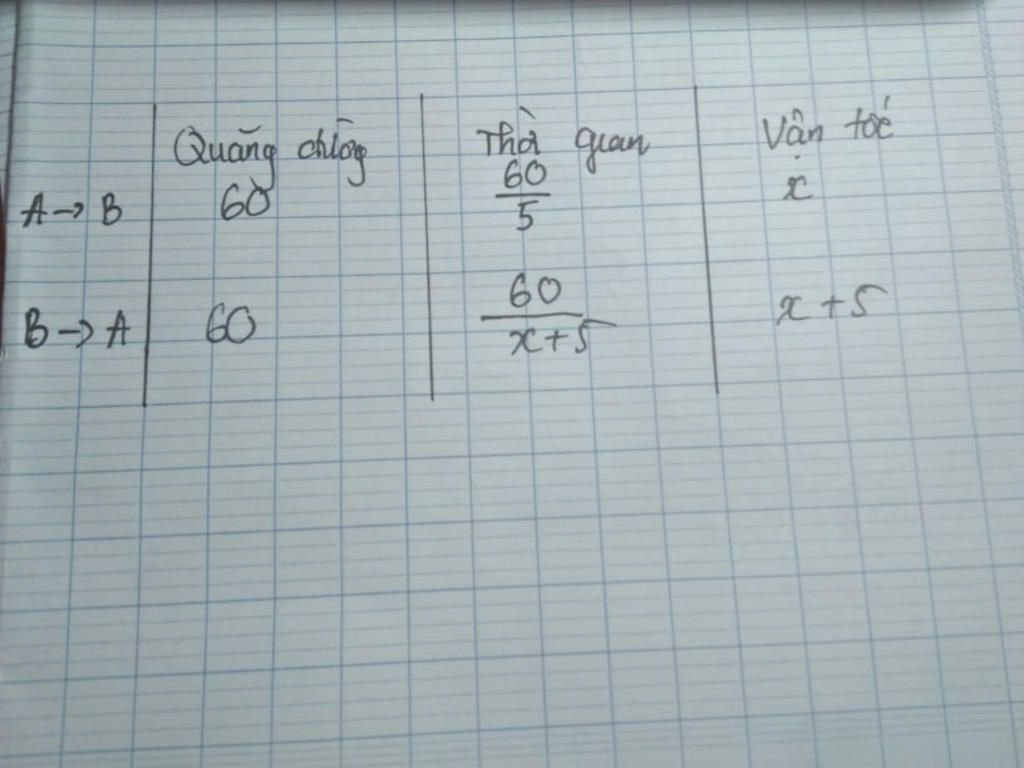 Quãng đường Thời gian Vận tốc
A → B 60 60/5 x
B → A 60 60/(x+5) x + 5